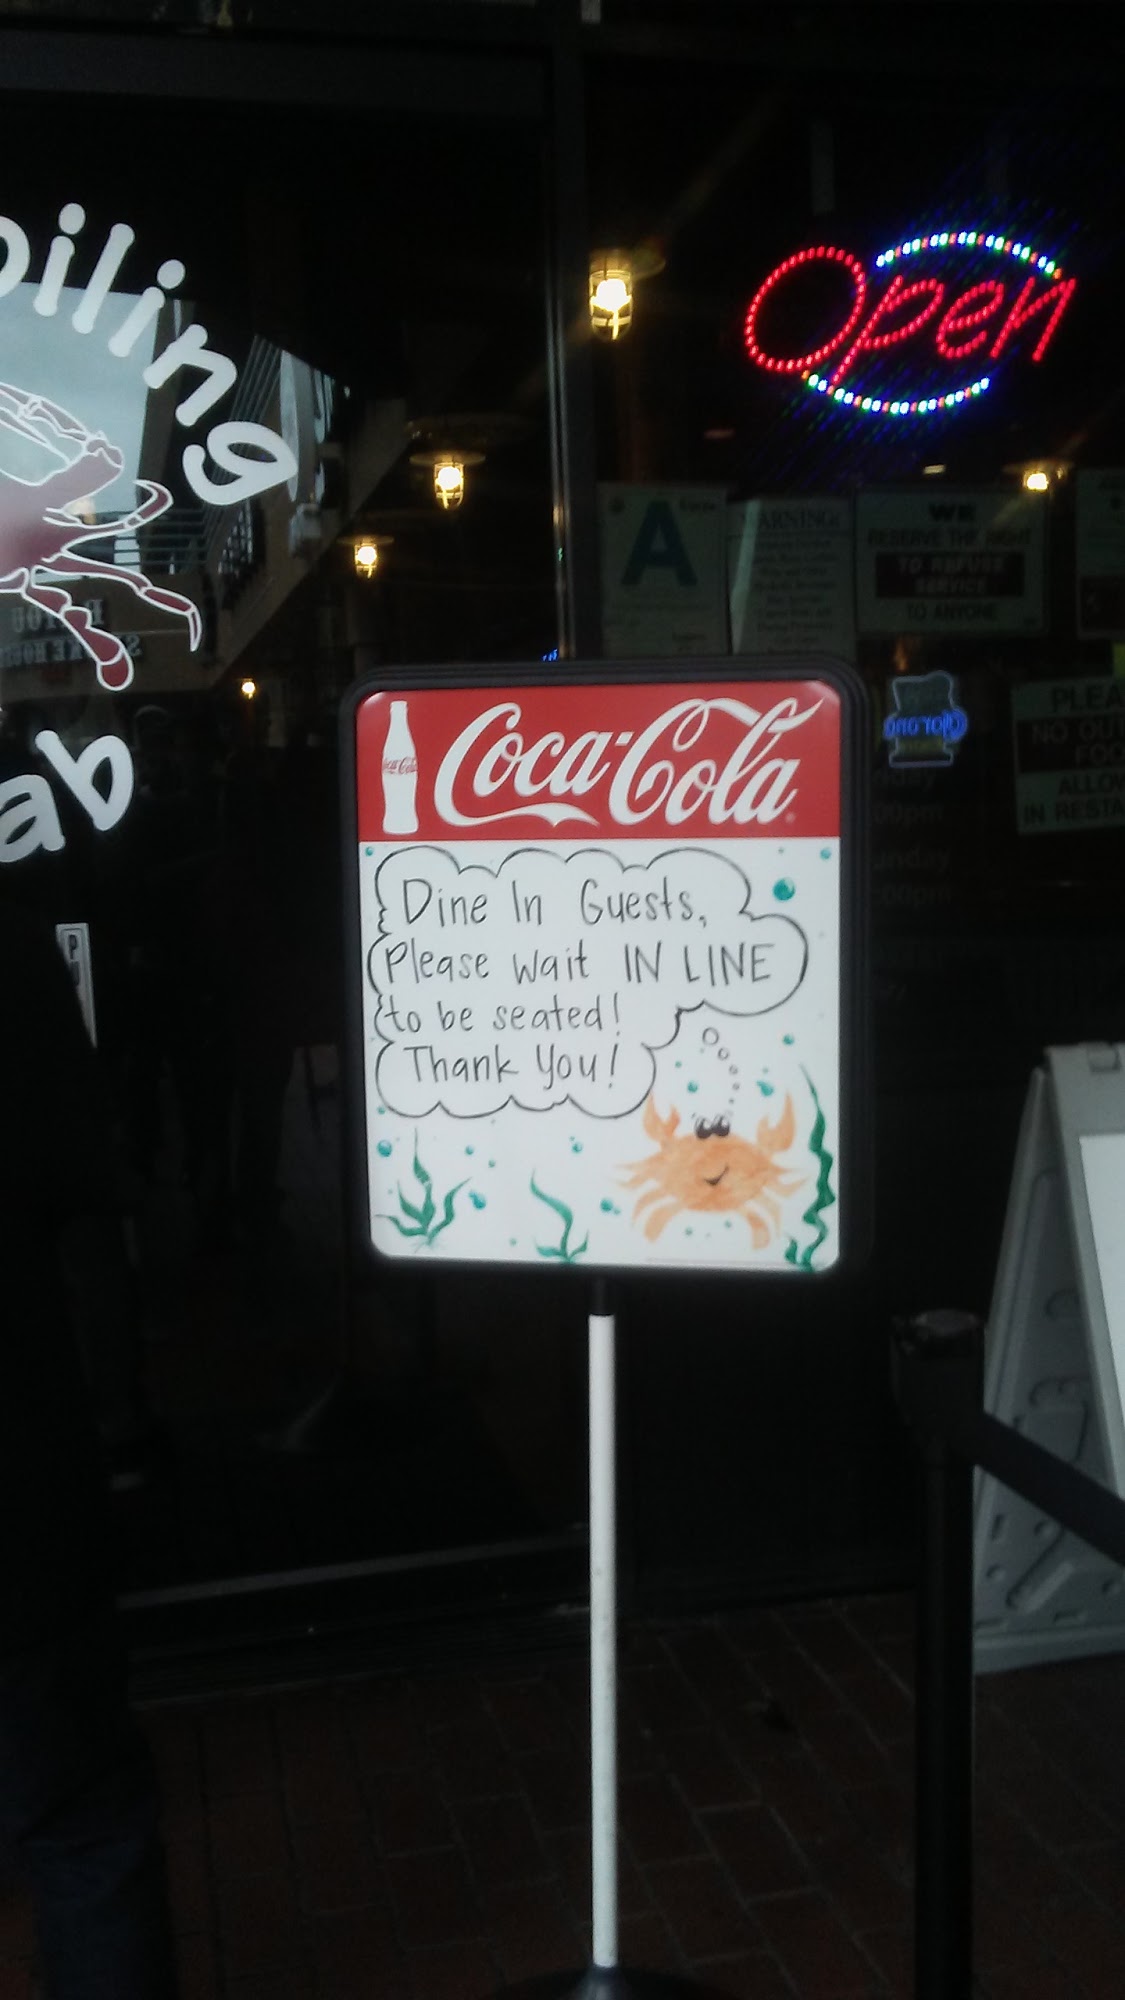 oiling
ab
Open
A
WARNING:
WE
RESERVE THE RIGHT
TO REFUSE
SERVICE
TO ANYONE
Corona
PLEA
NO OU
FOO
ALLOW
IN RESTA
00pm
unday
:00pm
Coca-Cola
Coca-Cola
Dine In Guests,
Please wait IN LINE
to be seated!
Thank You!